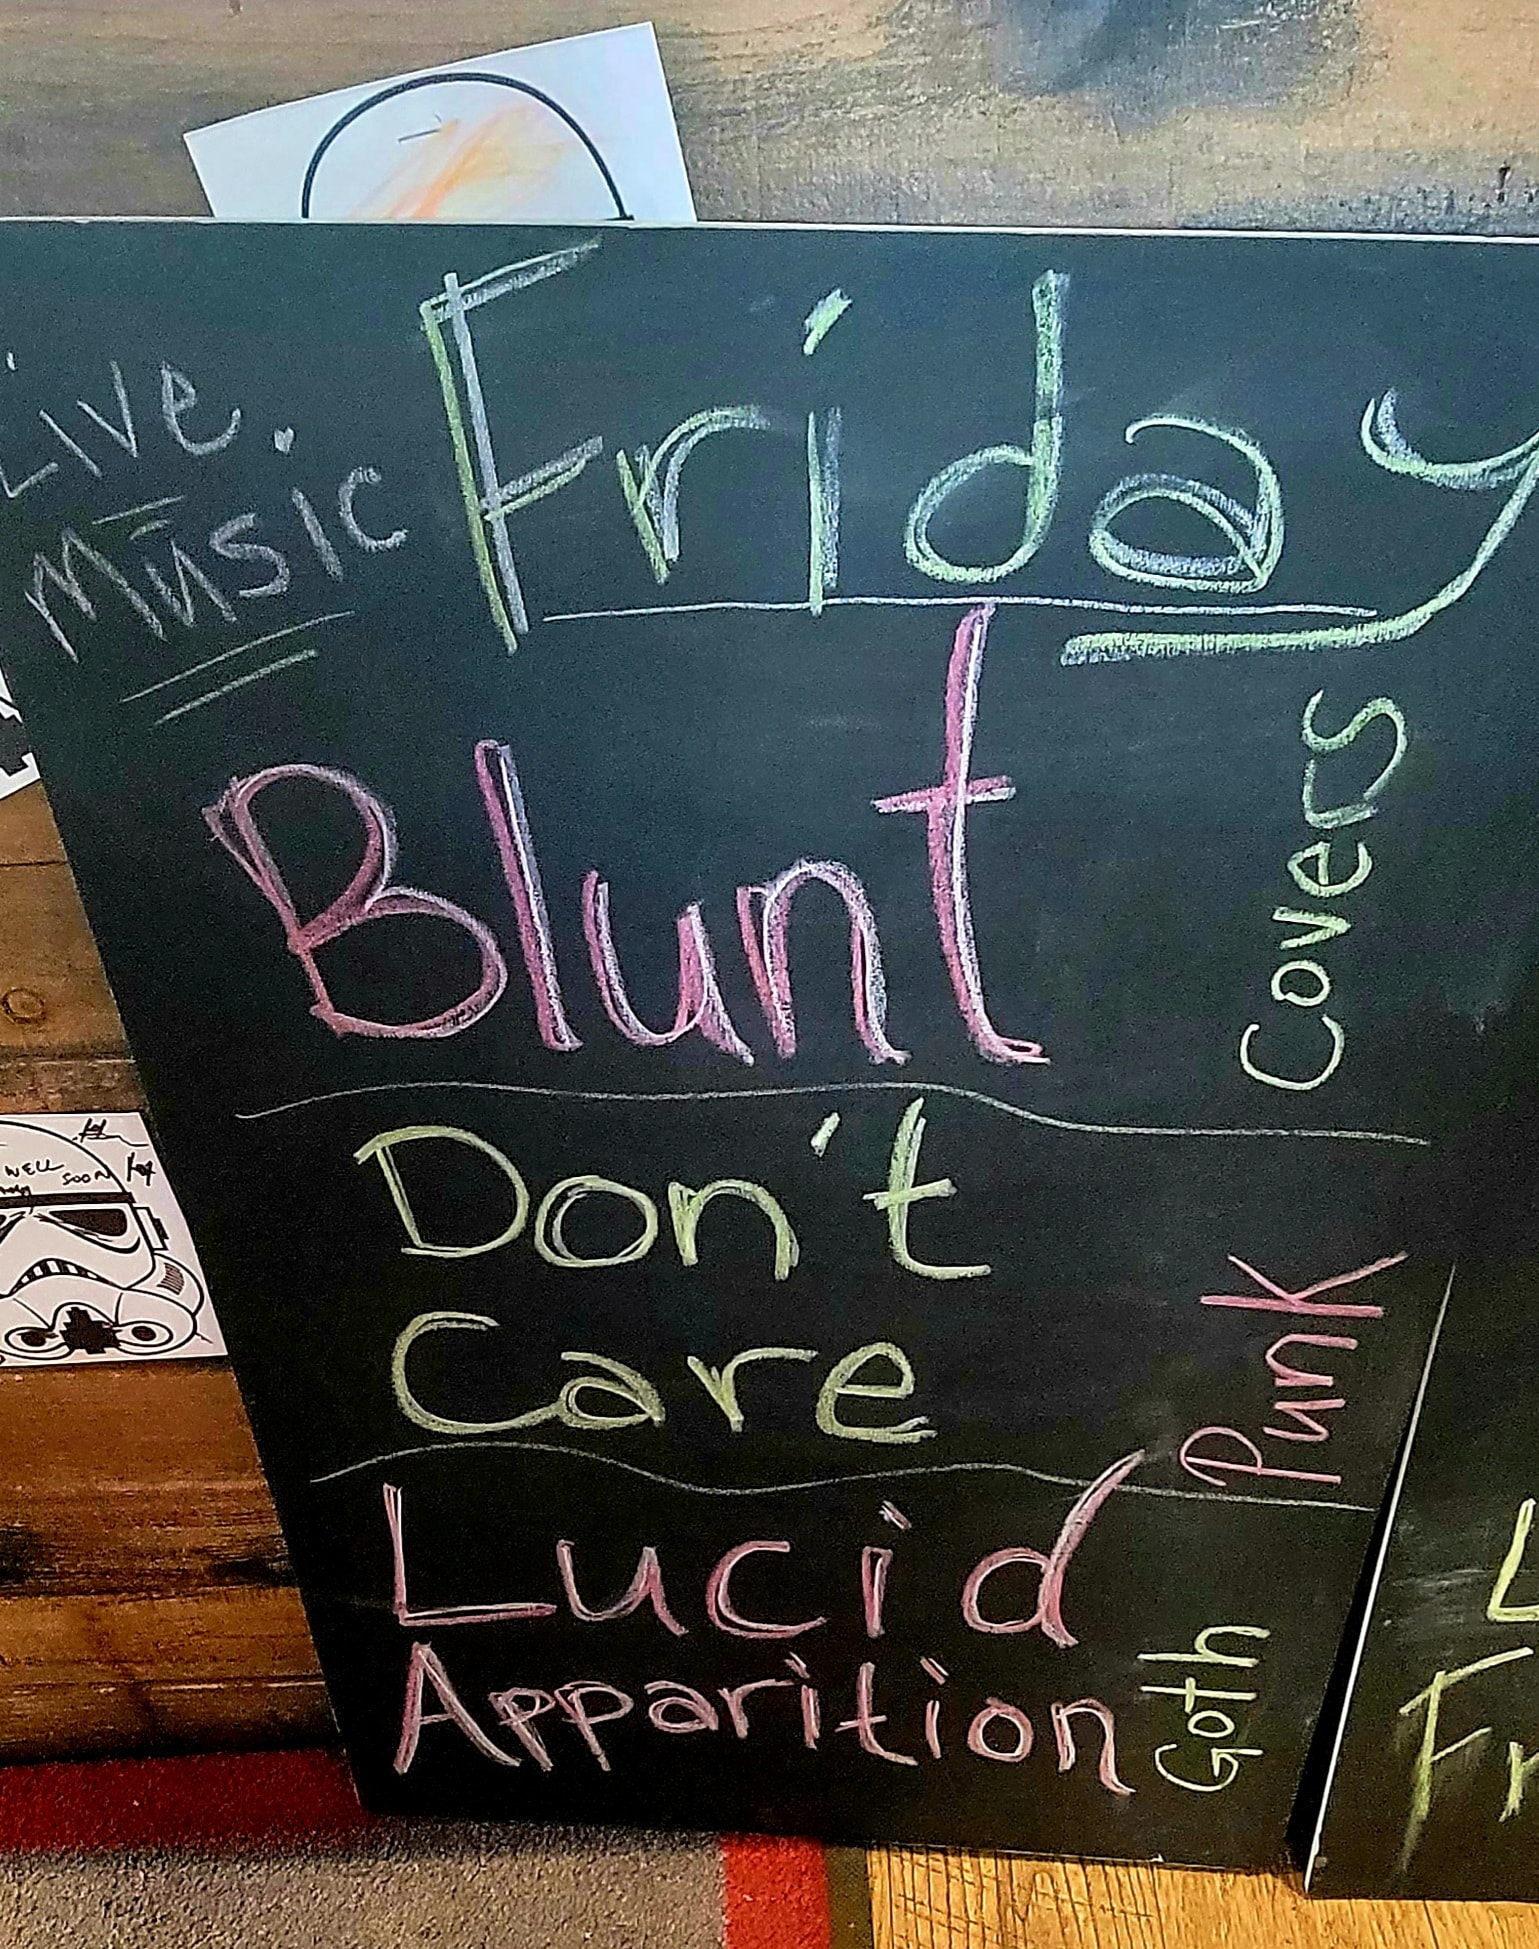 Live
Music
Friday
Blunt
Covers
Don't
Care
Punk
Lucid
Apparition
Goth
WELL
SOON
L
Fr